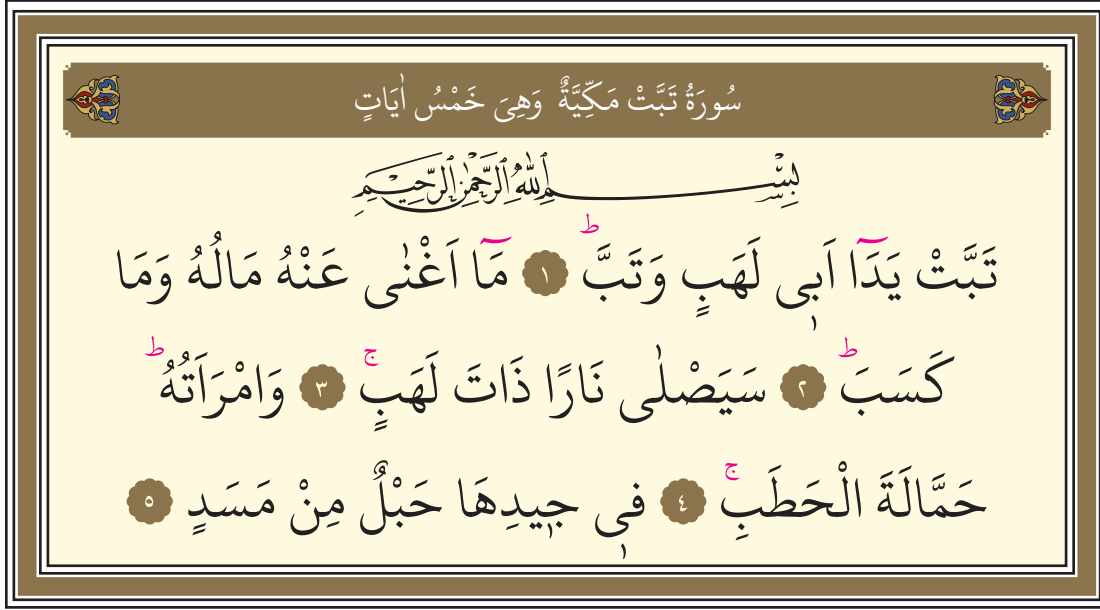 سُورَةُ تَبَّتْ مَكِّيَّةٌ وَهِىَ خَمْسُ اٰيَاتٍ
بِسْمِ اللّٰهِ الرَّحْمٰنِ الرَّحِيمِ
تَبَّتْ يَدَٓا اَبٖى لَهَبٍ وَتَبَّؕ ١ مَٓا اَغْنٰى عَنْهُ مَالُهُ وَمَا
كَسَبَؕ ٢ سَيَصْلٰى نَارًا ذَاتَ لَهَبٍۚ ٣ وَامْرَاَتُهُؕ
حَمَّالَةَ الْحَطَبِۚ ٤ فٖى جٖيدِهَا حَبْلٌ مِنْ مَسَدٍ ٥